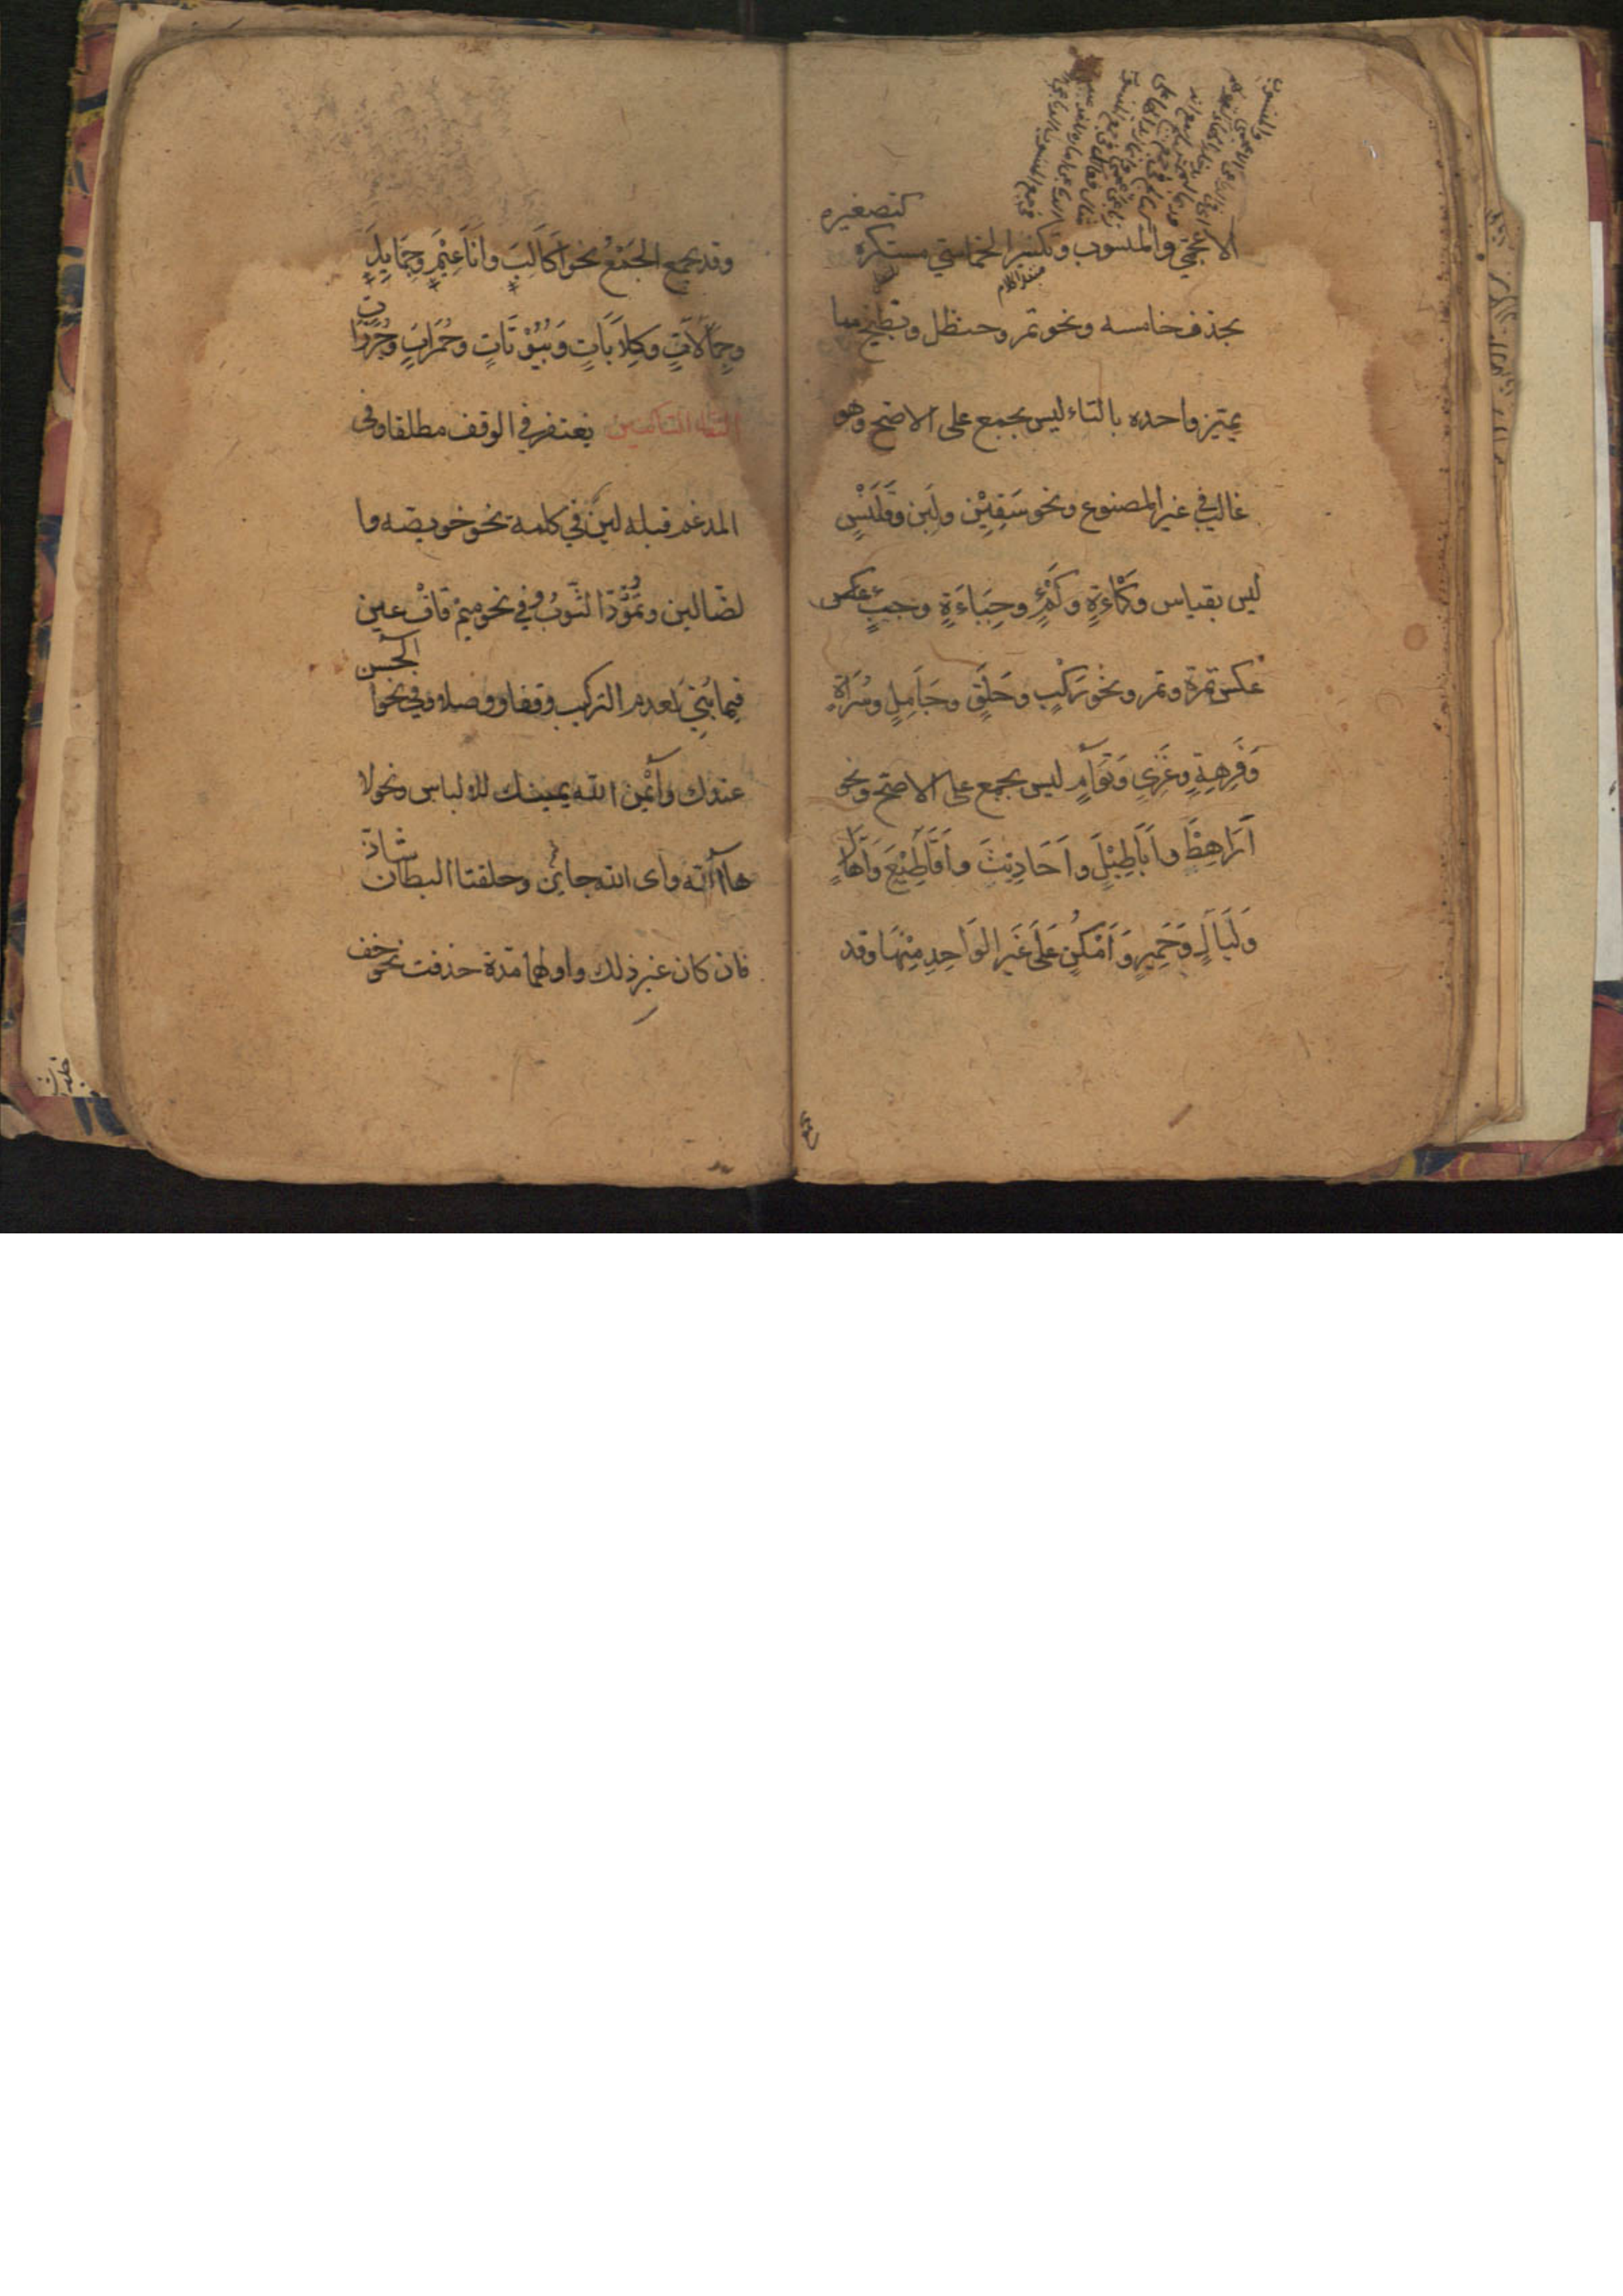 الاعجمي والمنسوب وتكسير الخماسي مستكره كتصغيره
بحذف خامسه ونحو تمر وحنظل وبطيخ مما
يميز واحده بالتاء ليس بجمع على الاصح وهو
غالب في غير المصنوع ونحو سَفِيْن ولَبِن وقَلَنْسٍ
ليس بقياس وكَمْاءةٍ وكَمْءٍ وجِبَاءَةٍ وجبءٍ عكس
عكس تمرة وتمر ونحو رَكْبٍ وحَلَقٍ وجَامِلٍ وسُرَاةٍ
وَفُرْهَةٍ وغَزِي وَتُوَآمٍ ليس بجمع على الاصح ونحو
اَرَاهِطَ واَبَاطِيْلَ واَحَادِيْثَ واَقَاطِيْعَ وَاَهَالٍ
وَلَيَالٍ وَحَمِيرٍ وَاَمْكُنٍ عَلَى غَيرِ الوَاحِدِ مِنْهَا وقد
وقد يجمع الجَمْعُ نحو اَكَالِبَ واَنَاعِيْمَ وجَمَايِلَ
وجِمَالَاتٍ وكِلَابَاتٍ وَبُيُوْتَاتٍ وحُمُرَاتٍ وجُزُرَات
التقاء الساكنين يغتفر في الوقف مطلقا وفي
المدغم قبله لين في كلمة نحو خويصة وا
لضالين وتُمُوْدَّ الثَّوبُ وفي نحو ميمْ قافْ عين
فيما بُنِيَ لعدم التركيب وقفا ووصلا وفي نحو آلحسن
عندك وآيْمُن الله يمينك للالباس ونحو لا
ها الله واى الله جائز وحلقتا البطان شاذ
فان كان غير ذلك واولهما مدة حذفت نحو خف